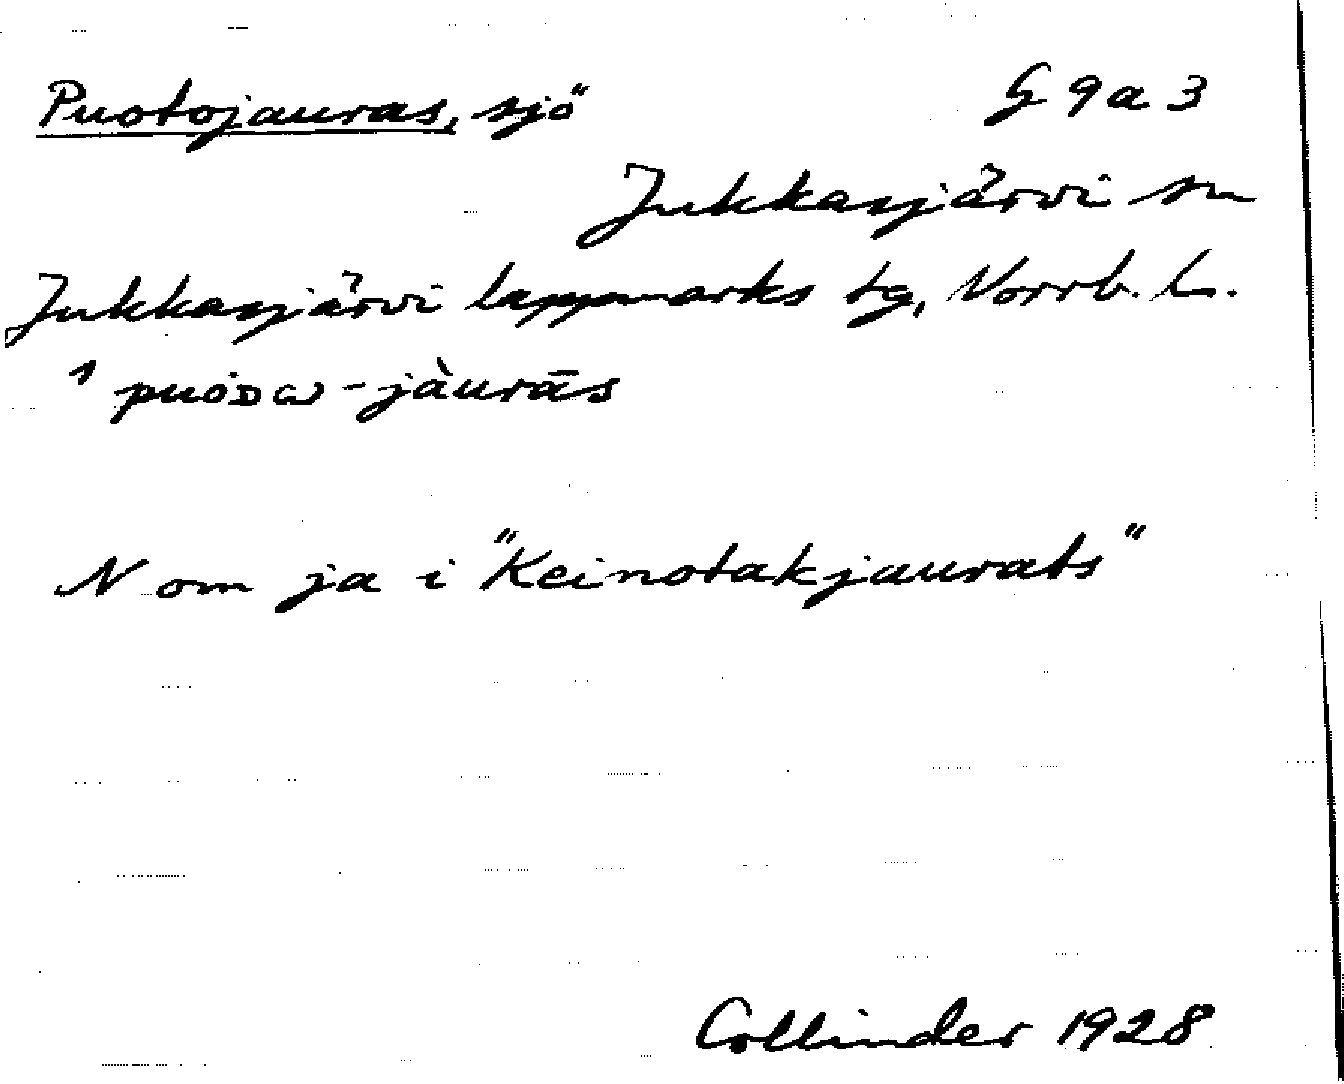 Puotojauras, sjö G 9 a 3
Jukkasjärvi sn
Jukkasjärvi lappmarks tg, Norrb. l.
puoᴅω-jàurās
N om ja i "Keinotakjaurats"
Collinder 1928